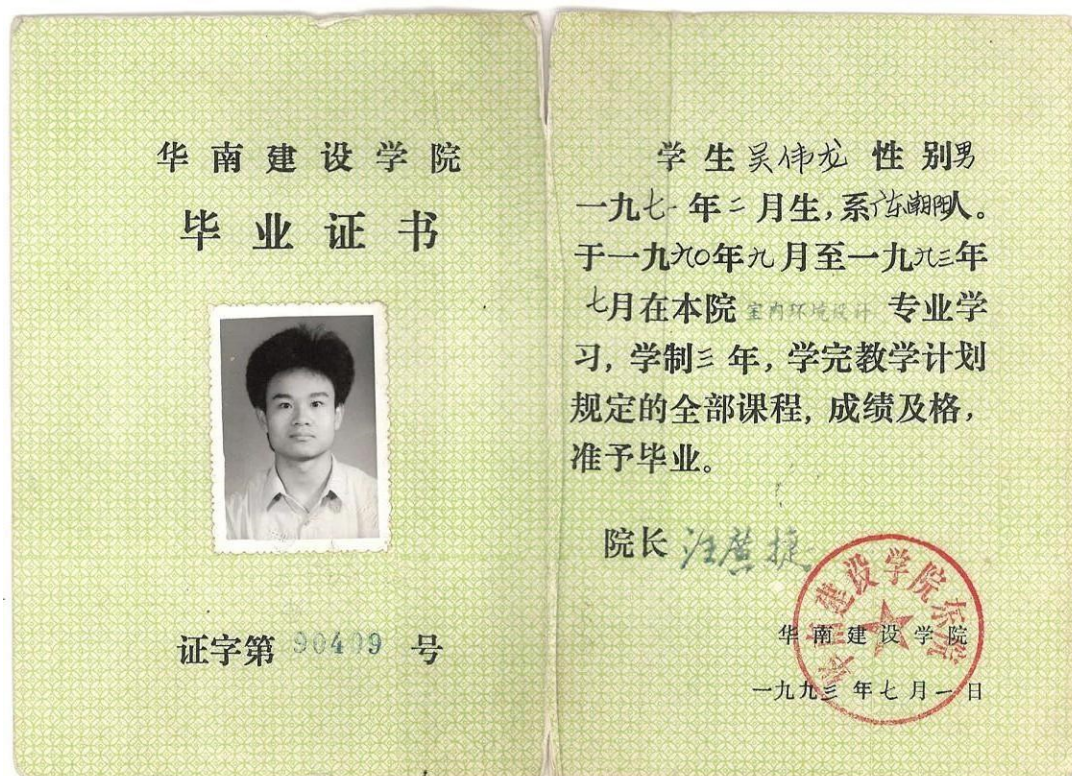 华南建设学院
毕业证书
证字第 90409 号
学生吴伟龙 性别男
一九七一年二月生,系广东潮阳人。
于一九九〇年九月至一九九三年
七月在本院 室内环境设计 专业学
习,学制三年,学完教学计划
规定的全部课程,成绩及格,
准予毕业。
院长
华南建设学院东院
华南建设学院
一九九三年七月一日